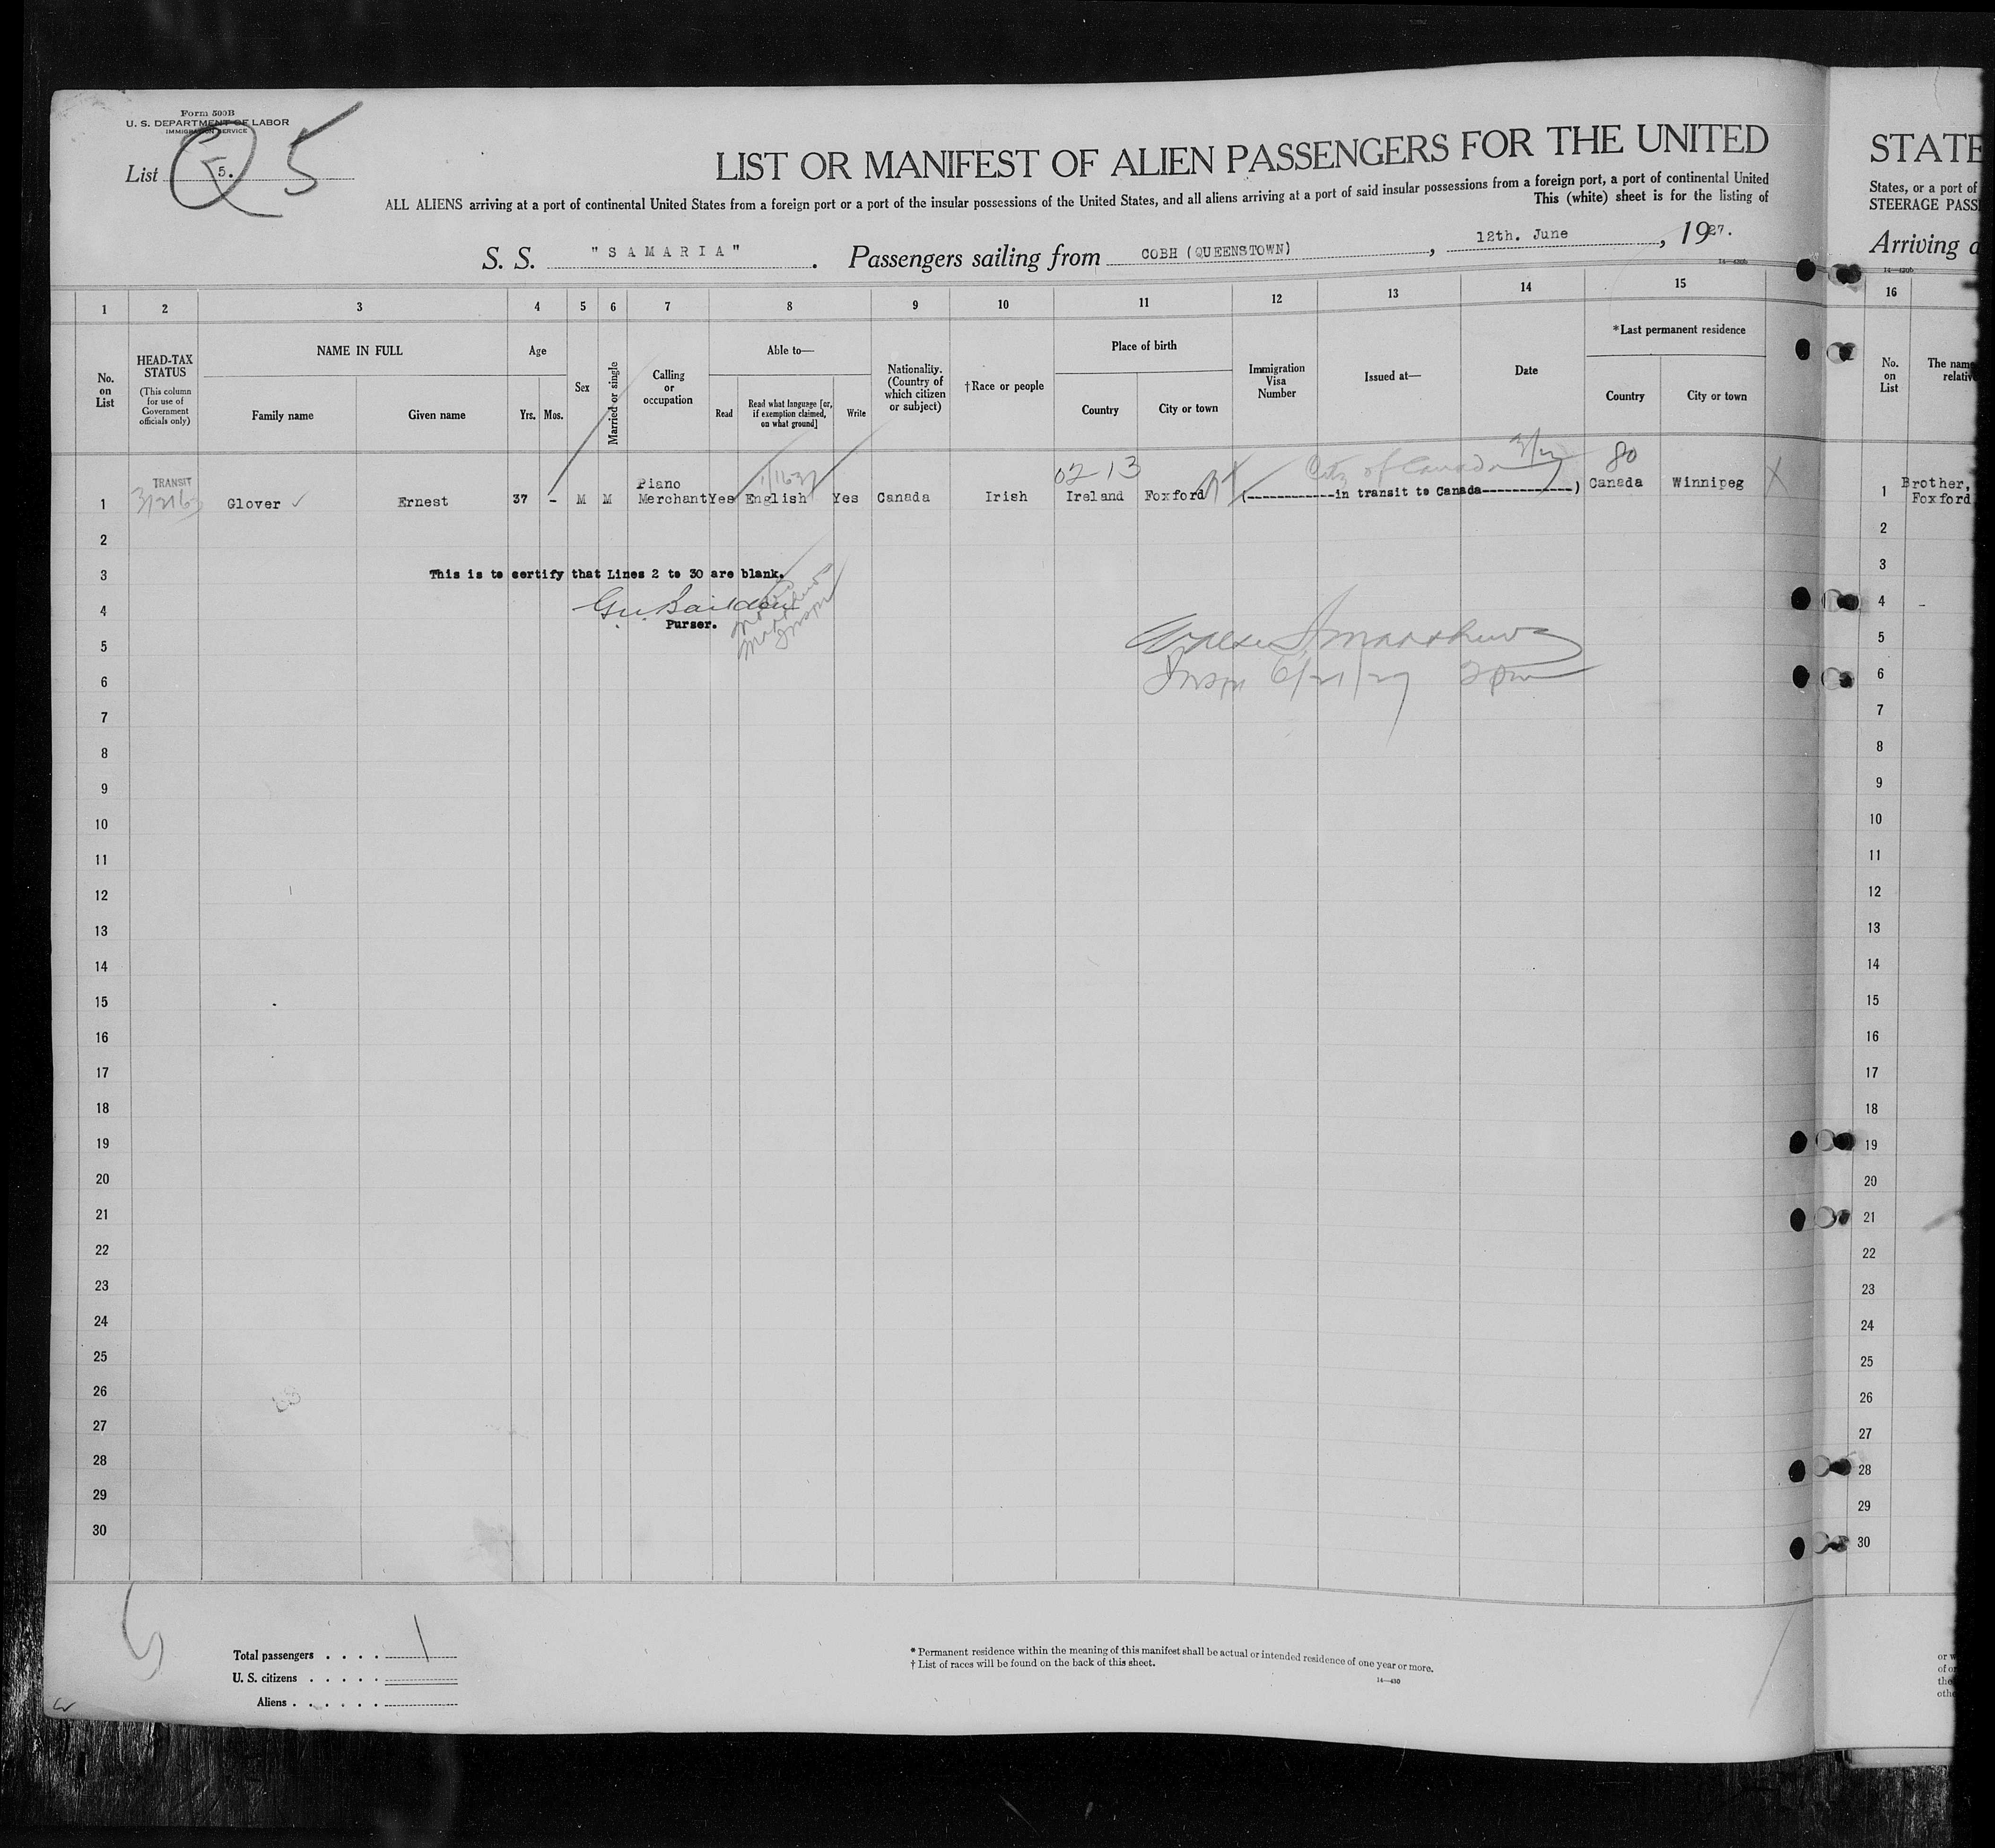 Form 500B
U. S. DEPARTMENT OF LABOR
IMMIGRATION SERVICE
List 5. 5
LIST OR MANIFEST OF ALIEN PASSENGERS FOR THE UNITED
ALL ALIENS arriving at a port of continental United States from a foreign port or a port of the insular possessions of the United States, and all aliens arriving at a port of said insular possessions from a foreign port, a port of continental United
This (white) sheet is for the listing of
S. S. "SAMARIA". Passengers sailing from COBH (QUEENSTOWN), 12th. June, 1927.
14—430b
1 2 3 4 5 6 7 8 9 10 11 12 13 14 15
No. on List
HEAD-TAX STATUS
(This column for use of Government officials only)
NAME IN FULL
Family name
Given name
Age
Yrs.
Mos.
Sex
Married or single
Calling or occupation
Able to—
Read
Read what language [or, if exemption claimed, on what ground]
Write
Nationality. (Country of which citizen or subject)
†Race or people
Place of birth
Country
City or town
Immigration Visa Number
Issued at—
Date
*Last permanent residence
Country
City or town
TRANSIT
02-13
City of Canada
80
1 Glover Ernest 37 - M M Piano Merchant Yes English Yes Canada Irish Ireland Foxford (------------in transit to Canada------------) Canada Winnipeg
2
3 This is to certify that Lines 2 to 30 are blank.
4
Purser.
5
6
Insp 6/21/27 2pm
7
8
9
10
11
12
13
14
15
16
17
18
19
20
21
22
23
24
25
26
27
28
29
30
Total passengers . . . . 1
U. S. citizens . . . . .
Aliens . . . . . .
* Permanent residence within the meaning of this manifest shall be actual or intended residence of one year or more.
† List of races will be found on the back of this sheet.
14—430
STATE
States, or a port of
STEERAGE PASS
Arriving a
14—430b
16
No. on List
The nam
relativ
1 Brother,
Foxford
2
3
4
5
6
7
8
9
10
11
12
13
14
15
16
17
18
19
20
21
22
23
24
25
26
27
28
29
30
or w
of or
the
othe